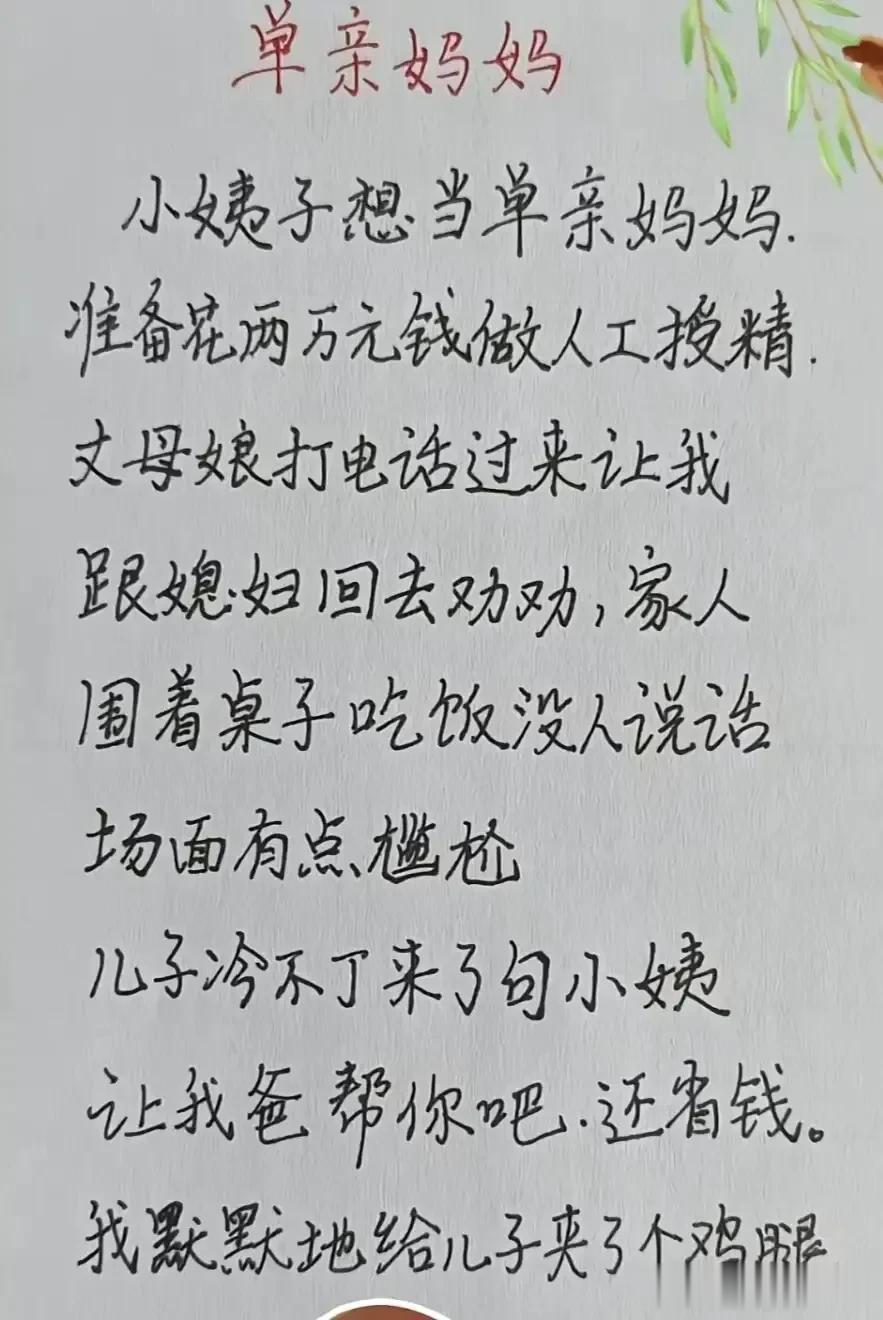 单亲妈妈
小姨子想当单亲妈妈.
准备花两万元钱做人工授精.
丈母娘打电话过来让我
跟媳妇回去劝劝,家人
围着桌子吃饭没人说话
场面有点尴尬
儿子冷不丁来了句小姨
让我爸帮你吧.还省钱。
我默默地给儿子夹了个鸡腿